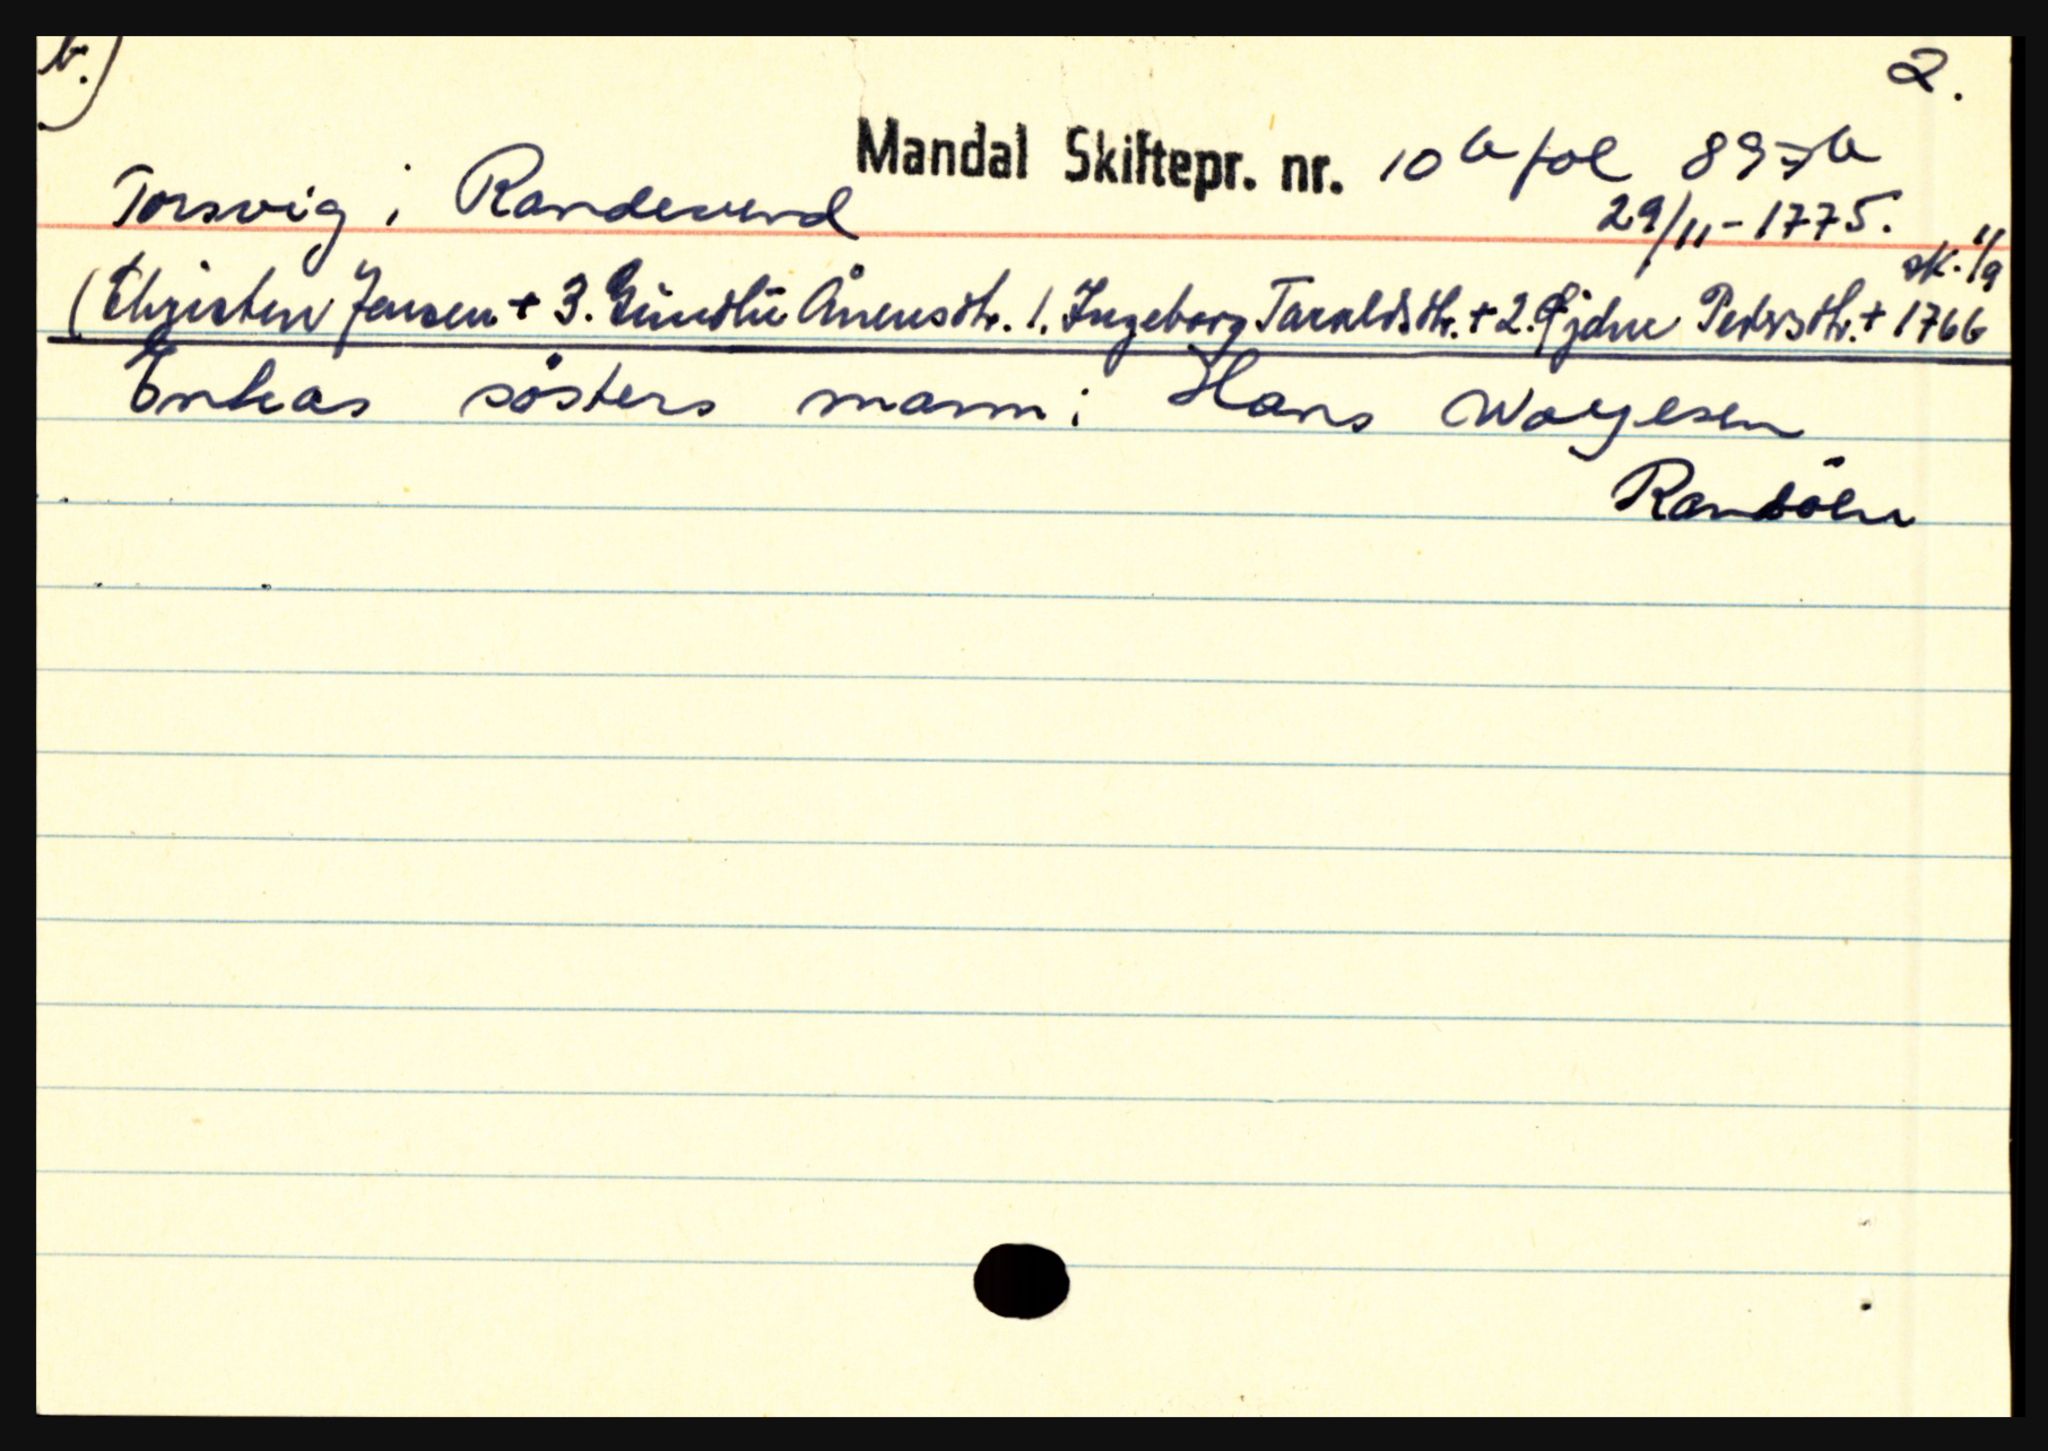 b.)
2.
Mandal Skiftepr. nr. 10 b fol 897b
Torsvig i Randesund
29/11-1775.
sk. 1/9
(Christen Jensen + 3. Gundlü Ånensdtr. 1. Ingeborg Taraldsdtr. + 2. Pedersdtr. + 1766
Enkas søsters mann: Hans Wogesen
Randöen